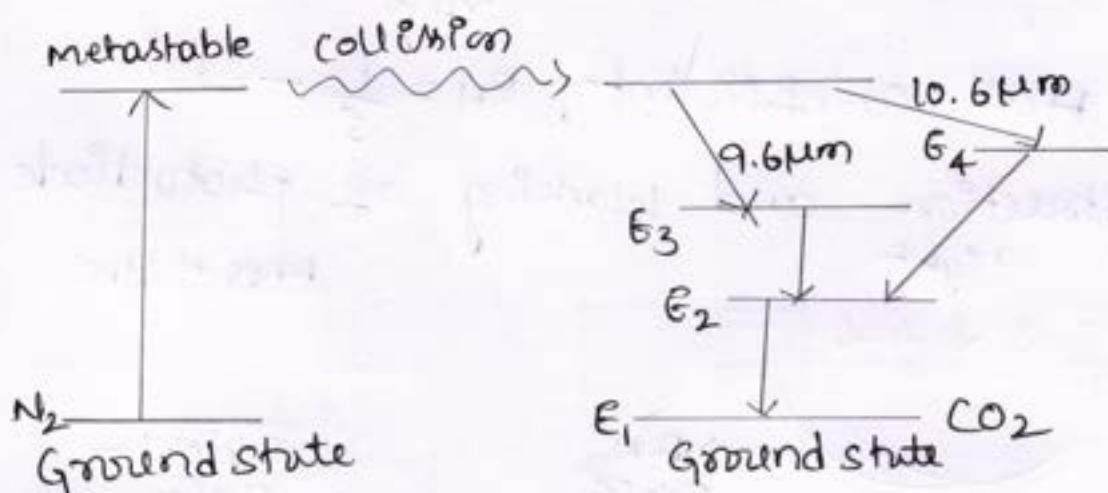 metastable collission
10.6μm
9.6μm E4
E3
E2
N2 E1 CO2
Ground state Ground state